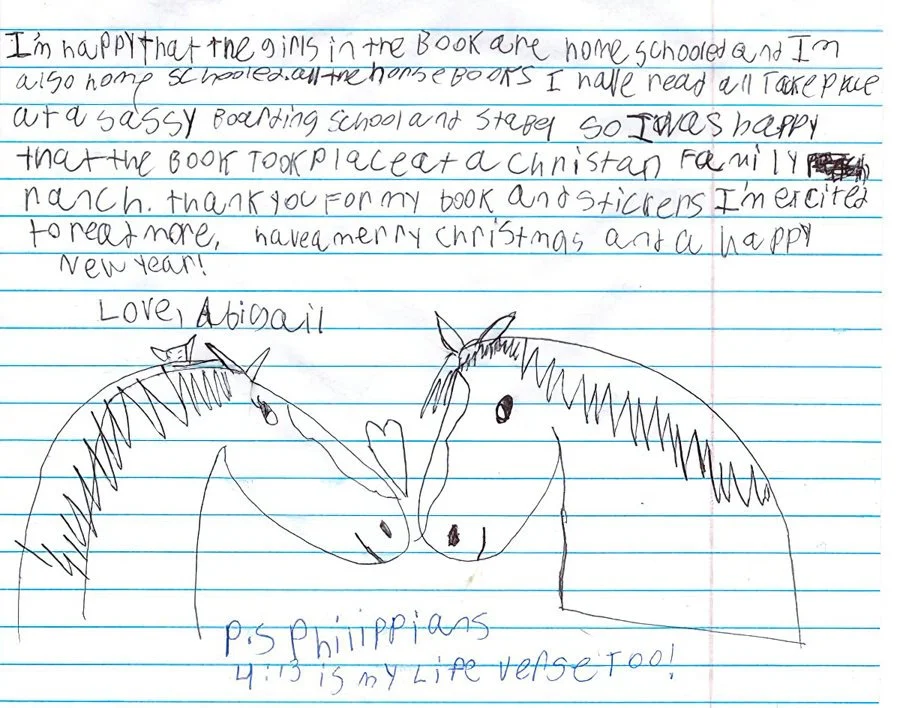 I'm happy that the girls in the Book are home schooled and I'm
also home schooled. all the horse Books I have read all Take place
at a sassy Boarding School and stabel so I was happy
that the Book Took place at a Christan Family
ranch. thank you For my book and stickers I'm excited
to read more, have a merry christmas and a happy
New year!
Love, Abigail
P.S Philippians
4:13 is my Life verse Too!